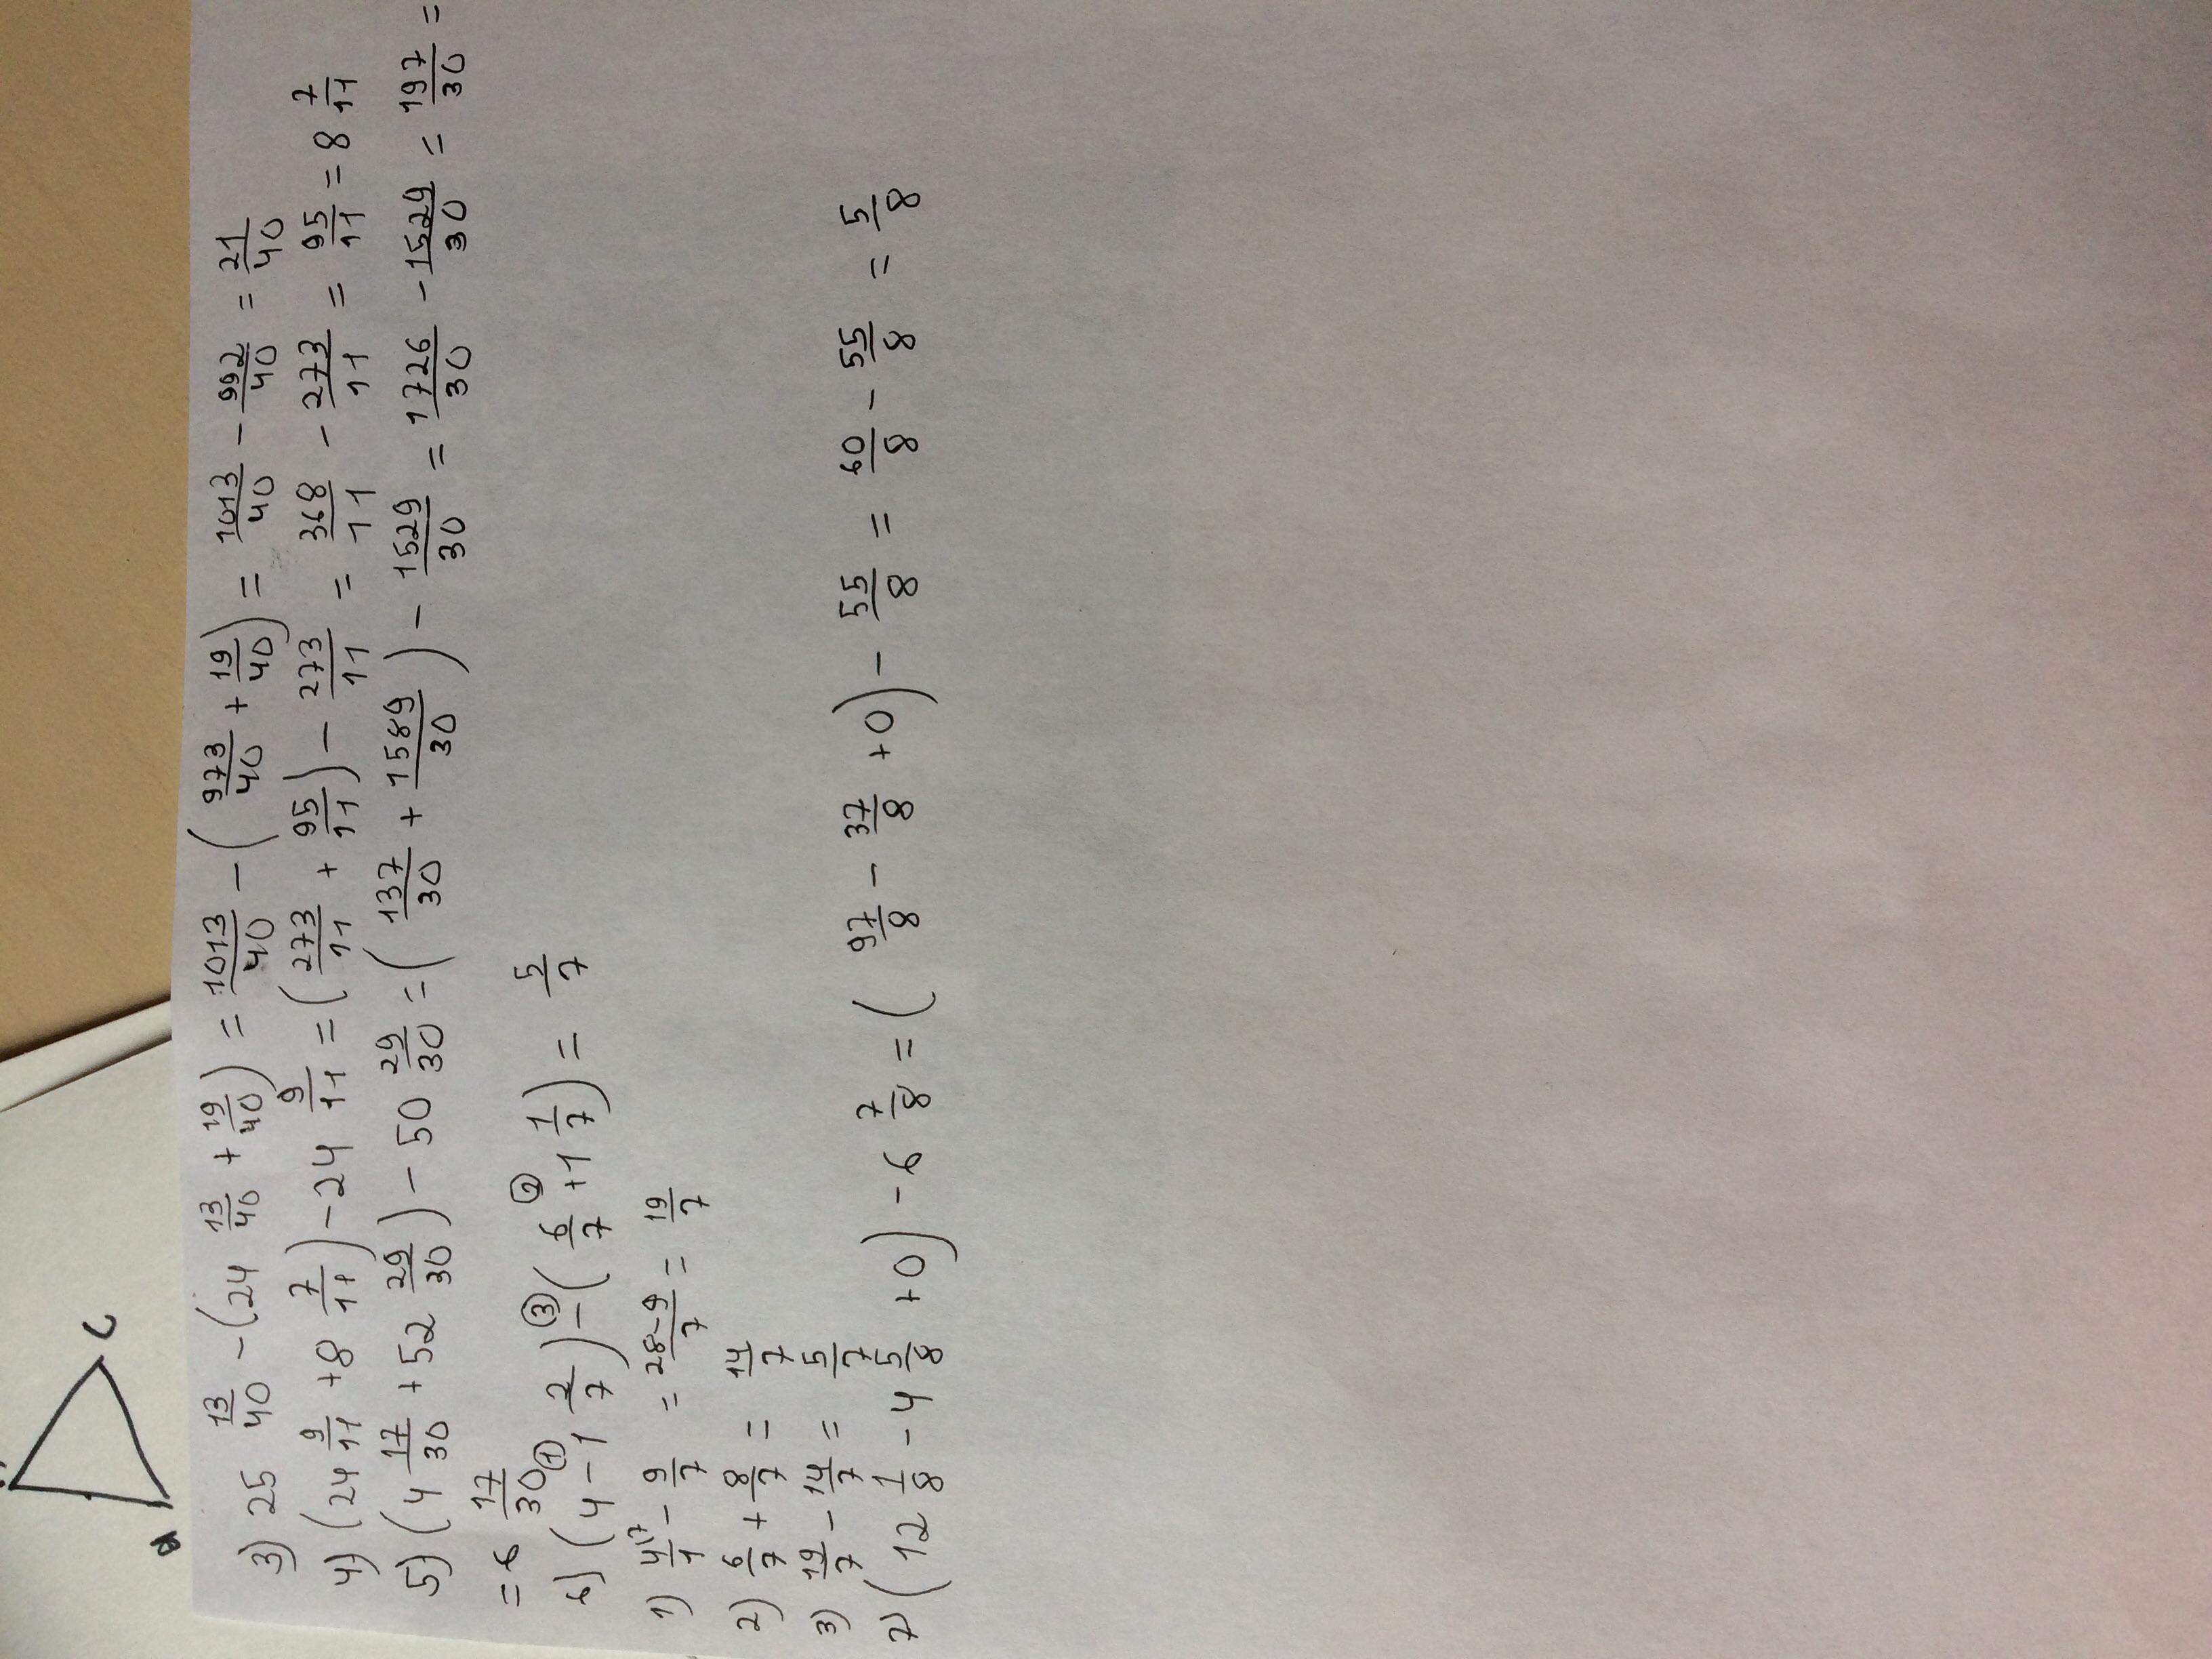 C
3) 25 13/40 - (24 13/40 + 19/40) = 1013/40 - (973/40 + 19/40) = 1013/40 - 992/40 = 21/40
4) (24 9/11 + 8 7/11) - 24 9/11 = (273/11 + 95/11) - 273/11 = 368/11 - 273/11 = 95/11 = 8 7/11
5) (4 17/30 + 52 29/30) - 50 29/30 = (137/30 + 1589/30) - 1529/30 = 1726/30 - 1529/30 = 197/30 =
= 6 17/30
6) (4 - ① 1 2/7) -③ (6/7 +② 1 1/7) = 5/7
1) 4\7/1 - 9/7 = 28-9/7 = 19/7
2) 6/7 + 8/7 = 14/7
3) 19/7 - 14/7 = 5/7
7) (12 1/8 - 4 5/8 + 0) - 6 7/8 = (97/8 - 37/8 + 0) - 55/8 = 60/8 - 55/8 = 5/8